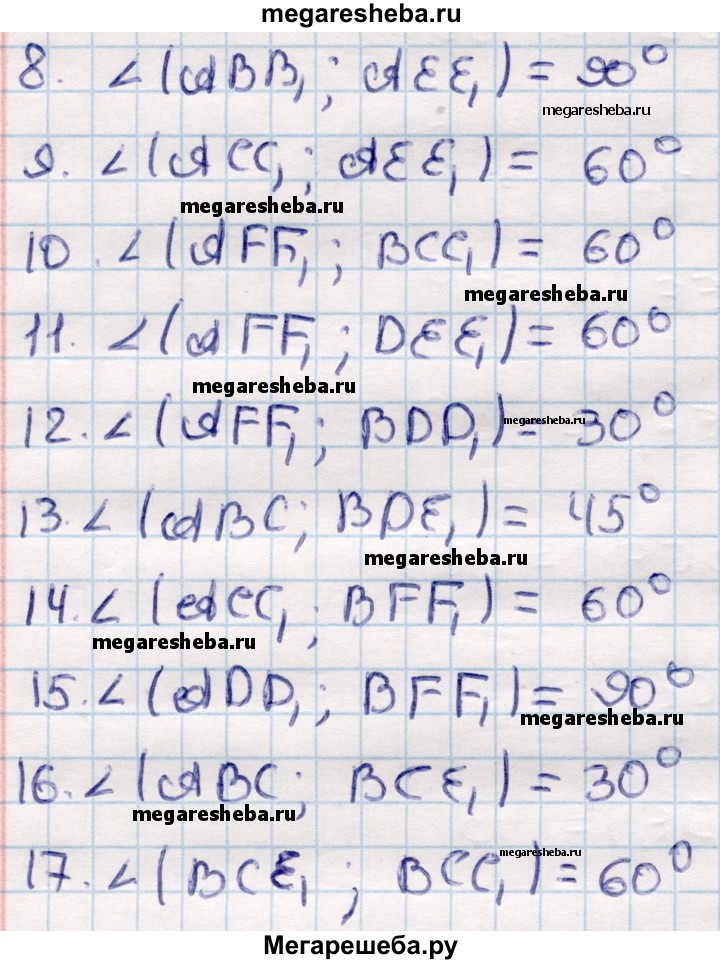 megaresheba.ru
8. ∠(ABB₁; AEE₁) = 90°
megaresheba.ru
9. ∠(ACC₁; AEE₁) = 60°
megaresheba.ru
10. ∠(AFF₁; BCC₁) = 60°
megaresheba.ru
11. ∠(AFF₁; DEE₁) = 60°
megaresheba.ru
12. ∠(AFF₁; BDD₁) = 30°
megaresheba.ru
13. ∠(ABC; BDE₁) = 45°
megaresheba.ru
14. ∠(ACC₁; BFF₁) = 60°
megaresheba.ru
15. ∠(ADD₁; BFF₁) = 90°
megaresheba.ru
16. ∠(ABC; BCE₁) = 30°
megaresheba.ru
17. ∠(BCE₁; BCC₁) = 60°
megaresheba.ru
Мегарешеба.ру